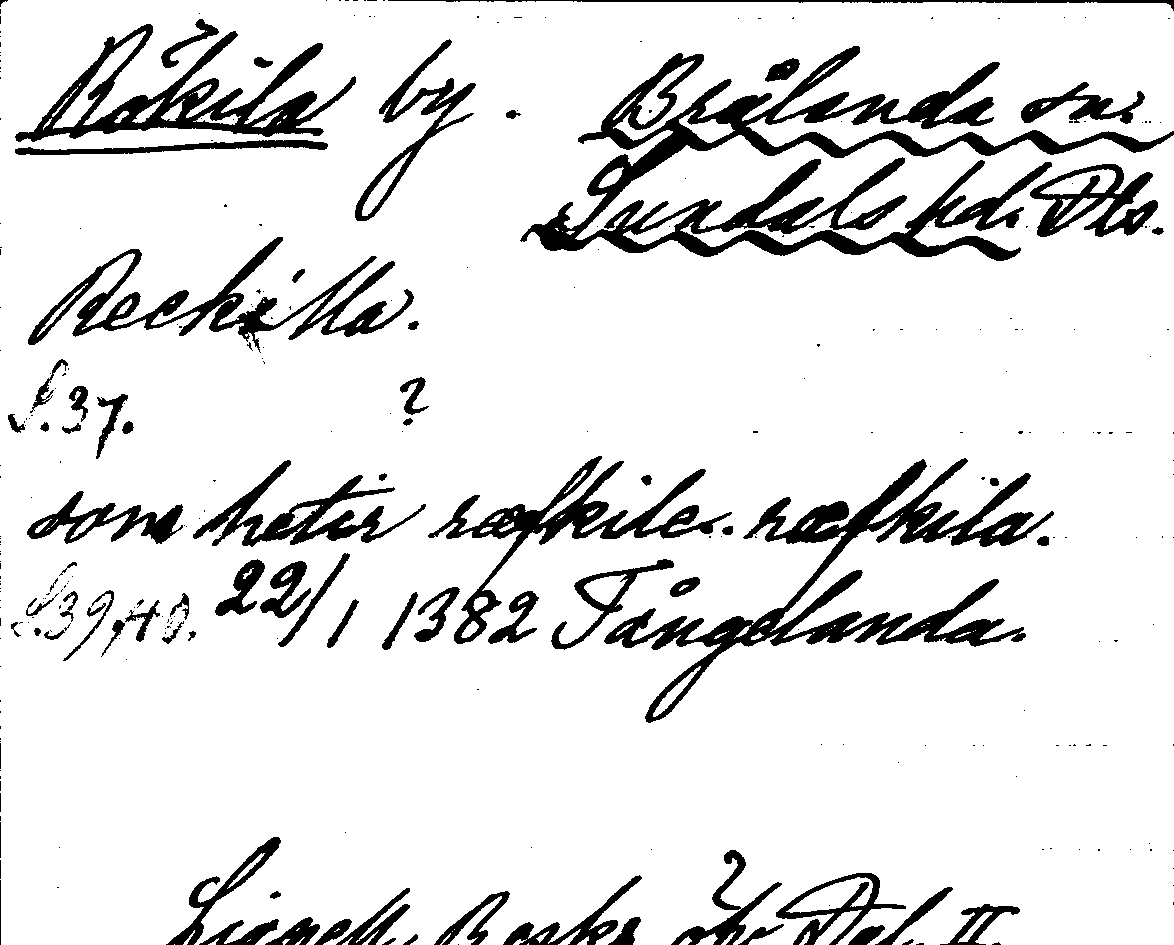 Räkila by. Brålanda sn.
Sundals hd. Dls.
Reckilla.
S.37. ?
som hetir ræfkile.. ræfkila.
S.39,40. 22/1 1382 Tångelanda.
Lignell, Beskr. öfv. Dal. II